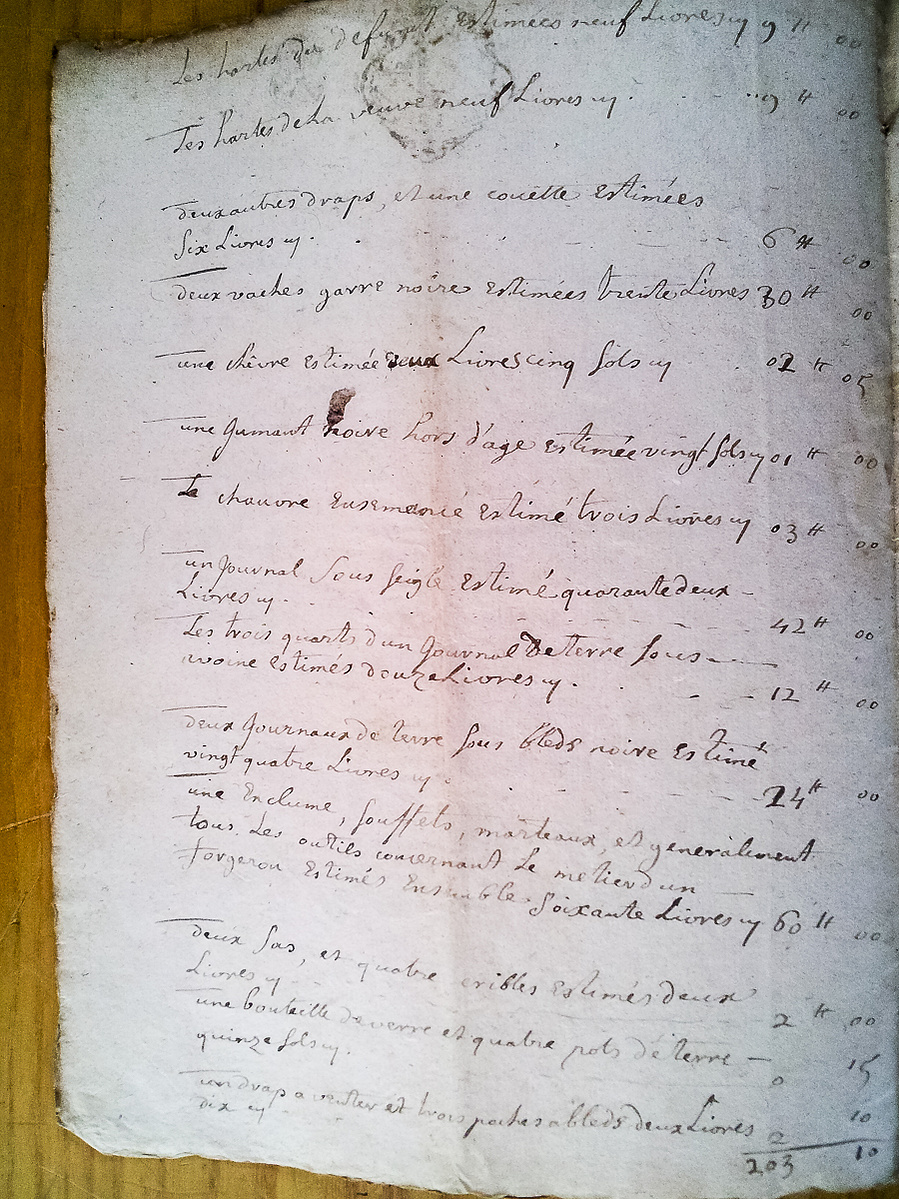 Les hardes du defunt Estimées neuf Livres cy 9 ₶ 00
Les hardes de La veuve neuf Livres cy . 9 ₶ 00
deux autres draps, et une couette Estimées
Six Livres cy . 6 ₶ 00
deux vaches garre noire Estimées trente Livres 30 ₶ 00
une chêvre Estimée deux Livres cinq sols cy 02 ₶ 05
une Jumant noire hors d'age Estimée vingt sols cy 01 ₶ 00
Le chauvre Ensemencé Estimé trois Livres cy 03 ₶ 00
un Journal sous seigle Estimé quarante deux –
Livres cy . 42 ₶ 00
Les trois quarts d'un Journal de terre sous
avoine Estimés douze Livres cy . 12 ₶ 00
deux Journaux de terre sous bleds noire Estimé
vingt quatre Livres cy . 24 ₶ 00
une Enclume, souffets, marteaux, et generalement
tous Les outils concernant Le metier d'un
forgeron Estimés Ensembles soixante Livres cy 60 ₶ 00
deux sas, et quatre cribles Estimés deux
Livres cy 2 ₶ 00
une bouteille de verre et quatre pots de terre –
quinze sols cy . 0 15
un drap a venter et trois poches a bleds deux Livres
dix cy 2 10
203 10